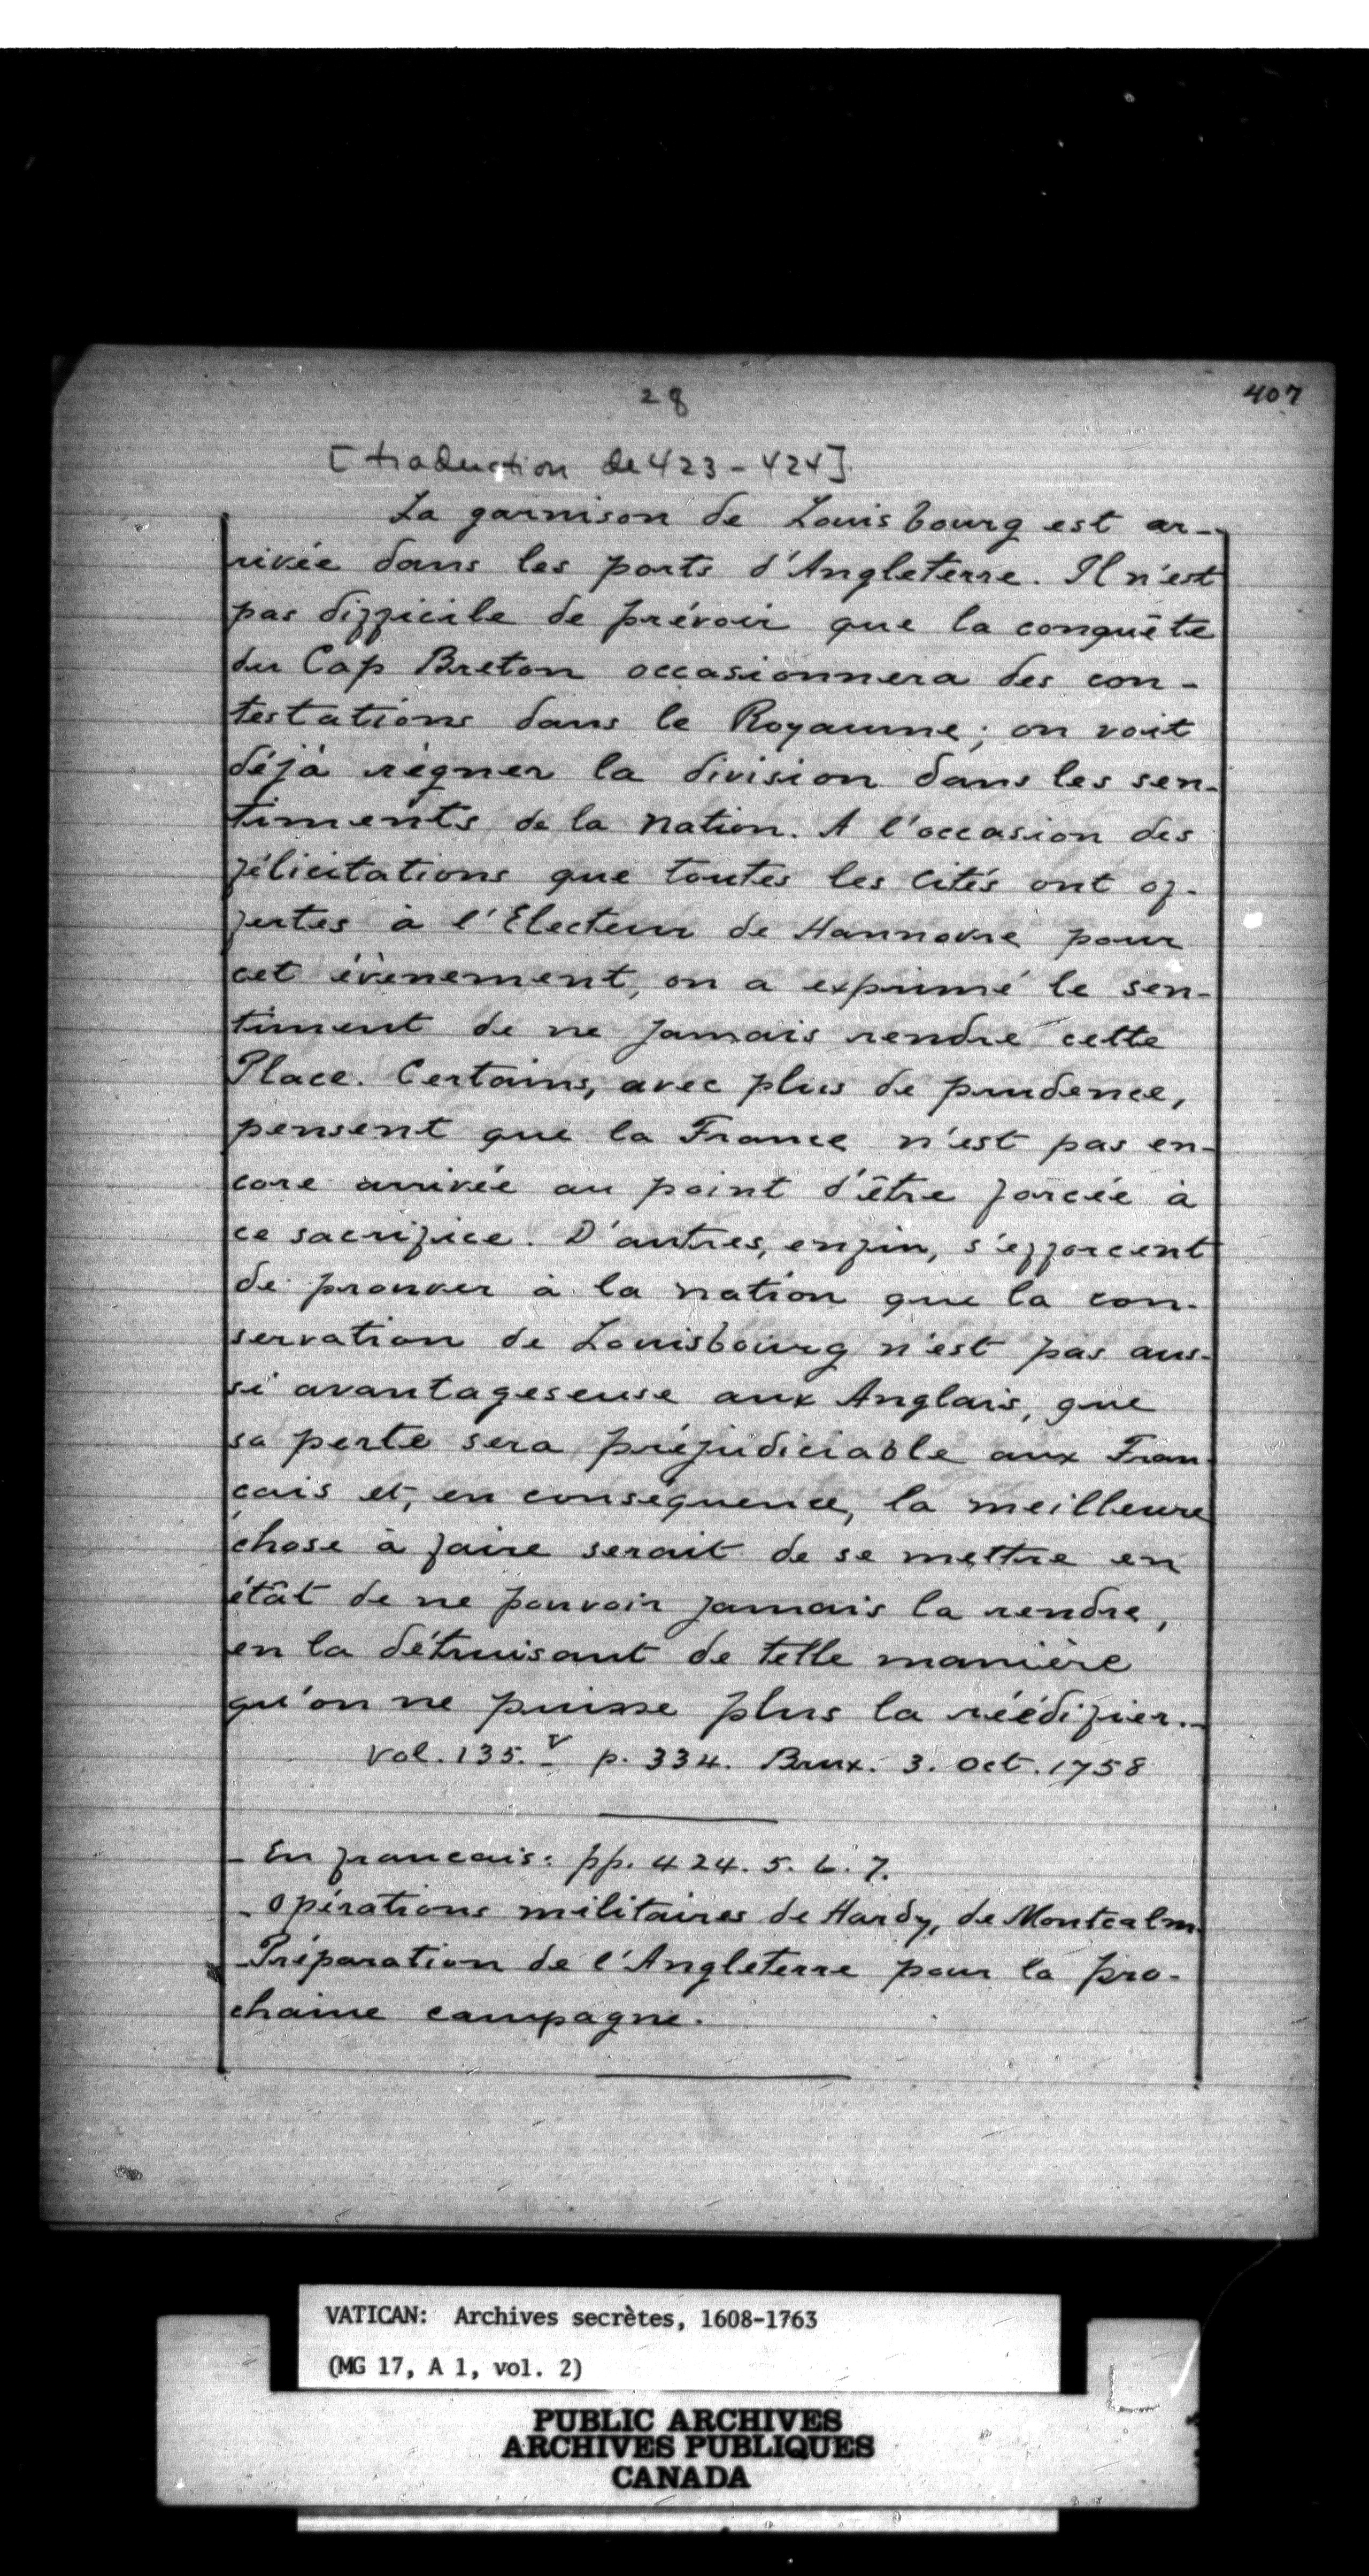 28
407
[traduction de 423-424]
La garnison de Louisbourg est ar-
rivée dans les ports d'Angleterre. Il n'est
pas difficile de prévoir que la conquête
du Cap Breton occasionnera des con-
testations dans le Royaume; on voit
déjà régner la division dans les sen-
timents de la nation. A l'occasion des
félicitations que toutes les cités ont of-
fertes à l'Electeur de Hannovre pour
cet évènement, on a exprimé le sen-
timent de ne jamais rendre cette
Place. Certains, avec plus de prudence,
pensent que la France n'est pas en-
core arrivée au point d'être forcée à
ce sacrifice. D'autres, enfin, s'efforcent
de prouver à la nation que la con-
servation de Louisbourg n'est pas aus-
si avantageseuse aux Anglais, que
sa perte sera préjudiciable aux Fran-
çais et, en conséquence, la meilleure
chose à faire serait de se mettre en
étât de ne pouvoir jamais la rendre,
en la détruisant de telle manière
qu'on ne puisse plus la réédifier.-
Vol. 135. v p. 334. Brux. 3. Oct. 1758
- En francais: pp. 424. 5. 6. 7.
- Opérations militaires de Hardy, de Montcalm.
- Préparation de l'Angleterre pour la pro-
chaine campagne.
VATICAN: Archives secrètes, 1608-1763
(MG 17, A 1, vol. 2)
PUBLIC ARCHIVES
ARCHIVES PUBLIQUES
CANADA